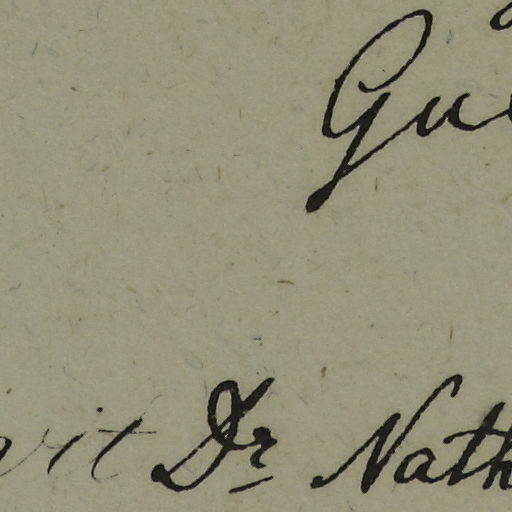 Gu
vit Dr Nath